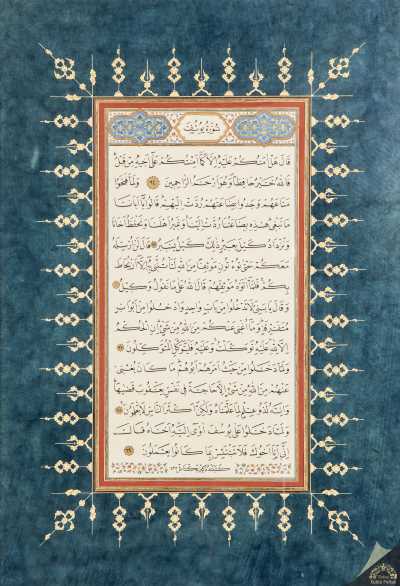 سُورَةُ يُوسُفَ
قَالَ هَلْ اٰمَنُكُمْ عَلَيْهِ اِلَّا كَمَٓا اَمِنْتُكُمْ عَلٰٓى اَخِيهِ مِنْ قَبْلُ
فَاللّٰهُ خَيْرٌ حَافِظًا وَهُوَ اَرْحَمُ الرَّاحِمِينَ ٦٤ وَلَمَّا فَتَحُوا
مَتَاعَهُمْ وَجَدُوا بِضَاعَتَهُمْ رُدَّتْ اِلَيْهِمْ قَالُوا يَٓا اَبَانَا
مَا نَبْغِي هٰذِهِ بِضَاعَتُنَا رُدَّتْ اِلَيْنَا وَنَمِيرُ اَهْلَنَا وَنَحْفَظُ اَخَانَا
وَنَزْدَادُ كَيْلَ بَعِيرٍ ذٰلِكَ كَيْلٌ يَسِيرٌ قَالَ لَنْ اُرْسِلَهُ
مَعَكُمْ حَتّٰى تُؤْتُونِ مَوْثِقًا مِنَ اللّٰهِ لَتَأْتُنَّنِي بِهِ اِلَّا اَنْ يُحَاطَ
بِكُمْ فَلَمَّٓا اٰتَوْهُ مَوْثِقَهُمْ قَالَ اللّٰهُ عَلٰى مَا نَقُولُ وَكِيلٌ
وَقَالَ يَا بَنِيَّ لَا تَدْخُلُوا مِنْ بَابٍ وَاحِدٍ وَادْخُلُوا مِنْ اَبْوَابٍ
مُتَفَرِّقَةٍ وَمَٓا اُغْنِي عَنْكُمْ مِنَ اللّٰهِ مِنْ شَيْءٍ اِنِ الْحُكْمُ
اِلَّا لِلّٰهِ عَلَيْهِ تَوَكَّلْتُ وَعَلَيْهِ فَلْيَتَوَكَّلِ الْمُتَوَكِّلُونَ
وَلَمَّا دَخَلُوا مِنْ حَيْثُ اَمَرَهُمْ اَبُوهُمْ مَا كَانَ يُغْنِي
عَنْهُمْ مِنَ اللّٰهِ مِنْ شَيْءٍ اِلَّا حَاجَةً فِي نَفْسِ يَعْقُوبَ قَضٰيهَا
وَاِنَّهُ لَذُو عِلْمٍ لِمَا عَلَّمْنَاهُ وَلٰكِنَّ اَكْثَرَ النَّاسِ لَا يَعْلَمُونَ
وَلَمَّا دَخَلُوا عَلٰى يُوسُفَ اٰوٰٓى اِلَيْهِ اَخَاهُ قَالَ
اِنِّٓي اَنَا اَخُوكَ فَلَا تَبْتَئِسْ بِمَا كَانُوا يَعْمَلُونَ ٦٩